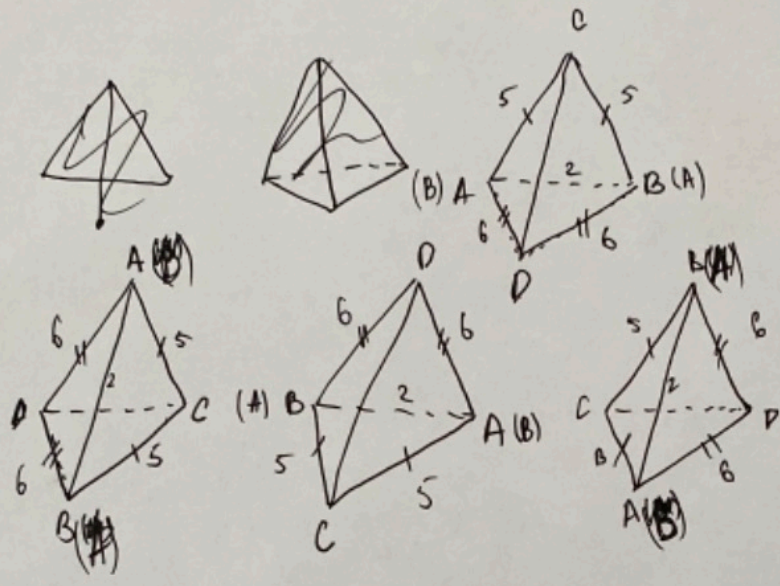 C
5 5
(B) A 2 B (A)
6 6
D
A
6 5
2
D C
6 5
B
D
6 6
(A) B 2 A (B)
5 5
C
B
5 6
2
C D
B 6
A